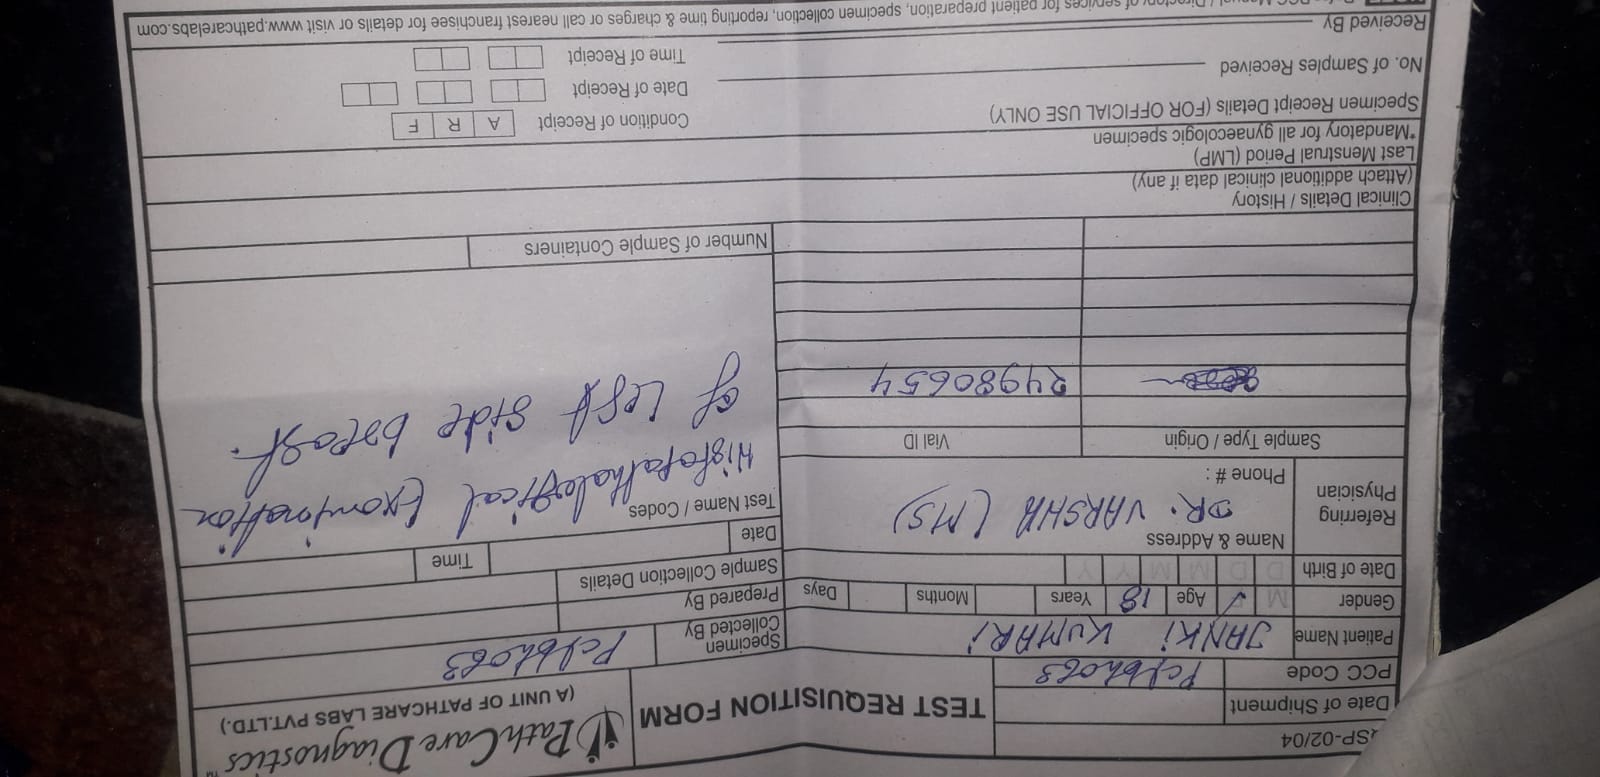 RSP-02/04
Date of Shipment
PCC Code
TEST REQUISITION FORM
PathCare Diagnostics™
(A UNIT OF PATHCARE LABS PVT.LTD.)
Patient Name JANKI KUMARI
Specimen Collected By
Gender M ✓ Age 18 Years Months Days
Prepared By
Date of Birth D D M M Y Y
Sample Collection Details
Date Time
Referring Physician
Name & Address
DR. VARSHA (MS)
Phone # :
Test Name / Codes
Histopathological Examination
of Left side breast.
Sample Type / Origin Vial ID
24980654
Number of Sample Containers
Clinical Details / History
(Attach additional clinical data if any)
Last Menstrual Period (LMP)
*Mandatory for all gynaecologic specimen
Specimen Receipt Details (FOR OFFICIAL USE ONLY)
Condition of Receipt A R F
No. of Samples Received
Date of Receipt
Received By
Time of Receipt
Manual / Directory of services for patient preparation, specimen collection, reporting time & charges or call nearest franchisee for details or visit www.pathcarelabs.com